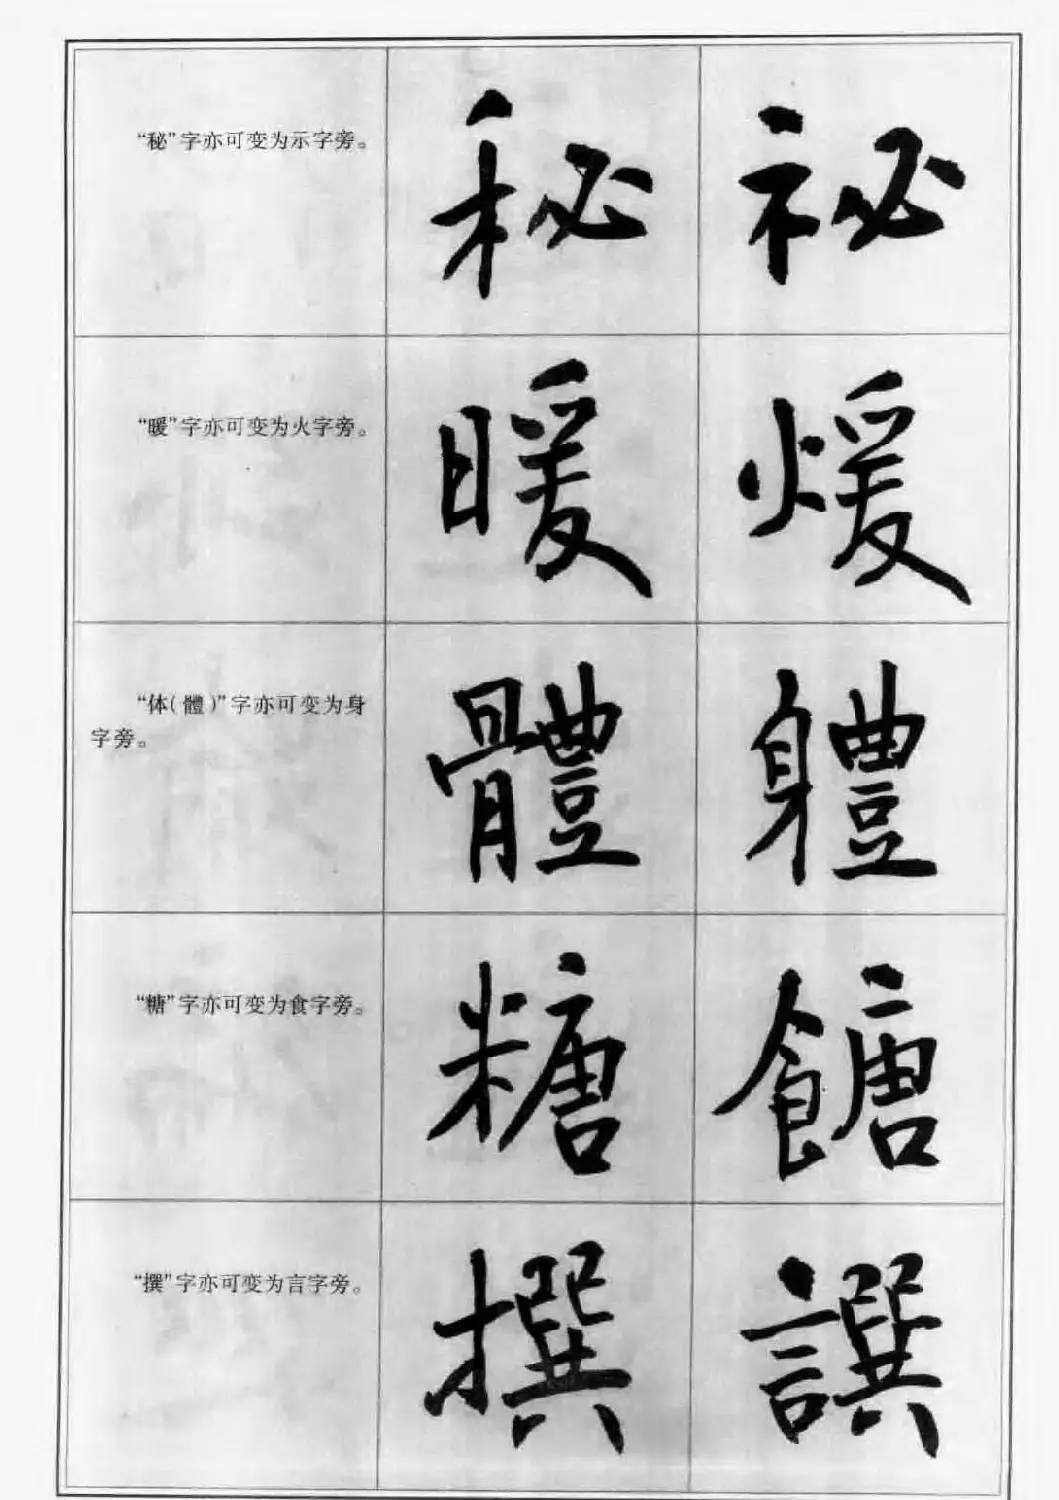 “秘”字亦可变为示字旁。
秘 祕
“暖”字亦可变为火字旁。
暖 煖
“体(體)”字亦可变为身
字旁。
體 軆
“糖”字亦可变为食字旁。
糖 餹
“撰”字亦可变为言字旁。
撰 譔